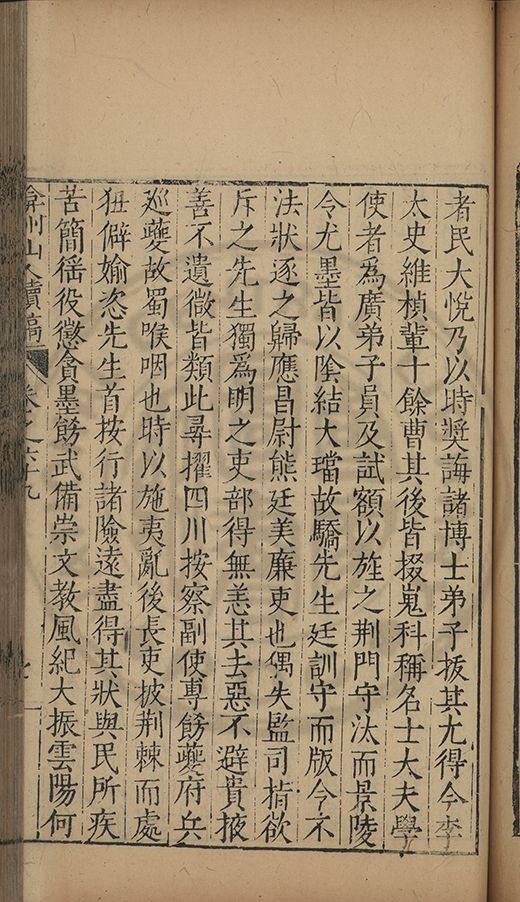 者民大悅乃以時獎誨諸博士弟子拔其尤得今李
太史維楨輩十餘曹其後皆掇嵬科稱名士大夫學
使者爲廣弟子員及試額以旌之荆門守汰而景陵
令尤墨皆以陰結大璫故驕先生廷訓守而版令不
法狀逐之歸應昌尉熊廷美廉吏也偶失監司指欲
斥之先生獨爲明之吏部得無恙其去惡不避貴掖
善不遺微皆類此尋擢四川按察副使專飭夔府兵
巡夔故蜀喉咽也時以施夷亂後長吏披荆棘而處
狃僻媮恣先生首按行諸險遠盡得其狀與民所疾
苦簡徭役懲貪墨飭武備崇文教風紀大振雲陽何
弇州山人續稿 卷之六十九 七